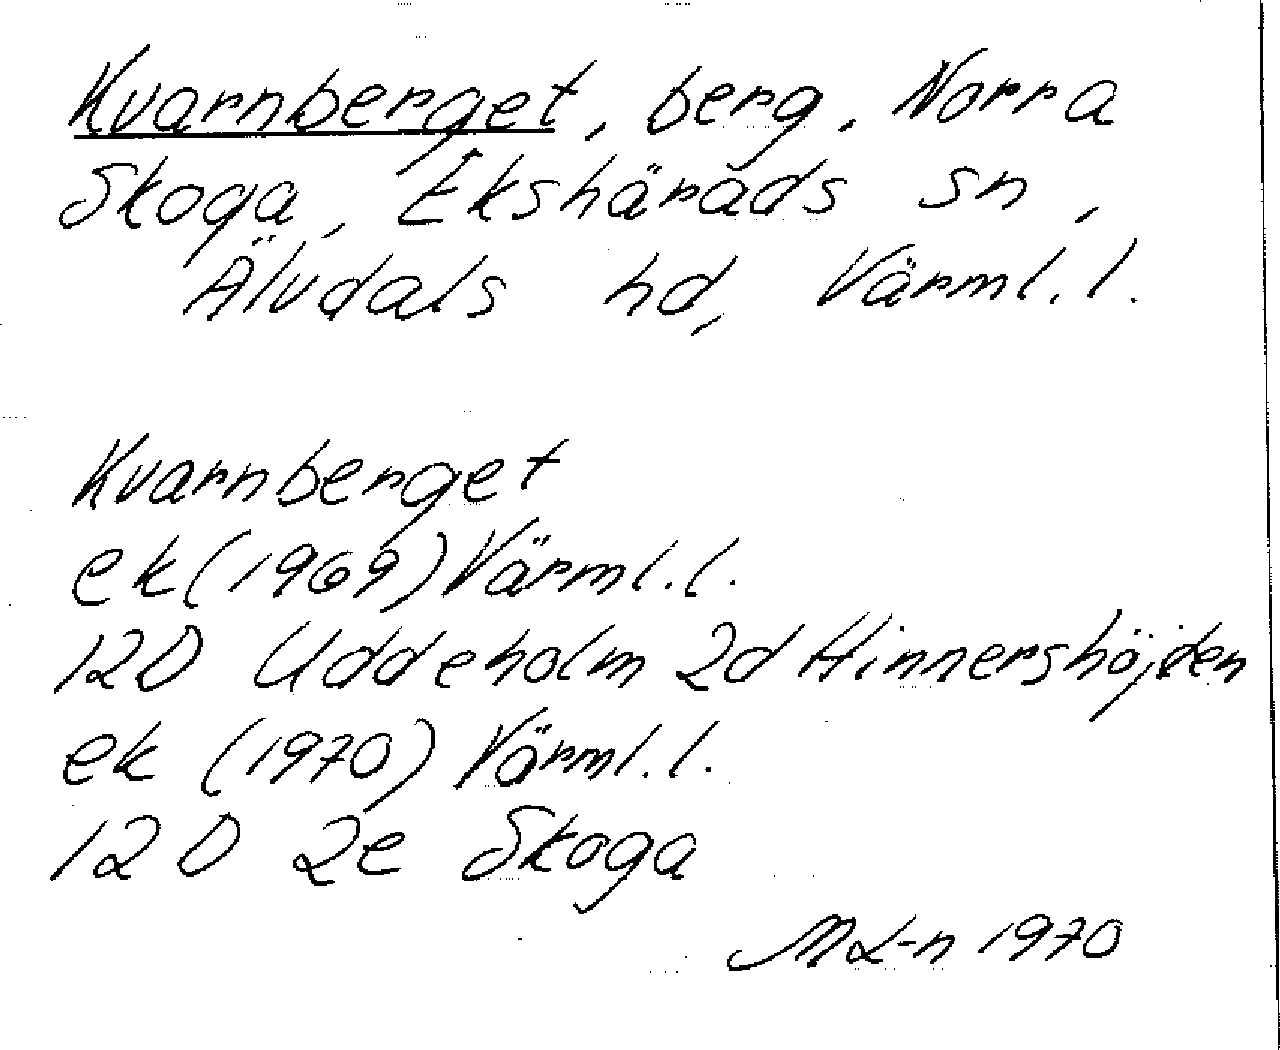 Kvarnberget, berg, Norra
Skoga, Ekshärads sn,
Älvdals hd, Värml. l.
Kvarnberget
ek (1969) Värml. l.
12D Uddeholm 2d Hinnershöjden
ek (1970) Värml. l.
12 D 2e Skoga
ML-n 1970